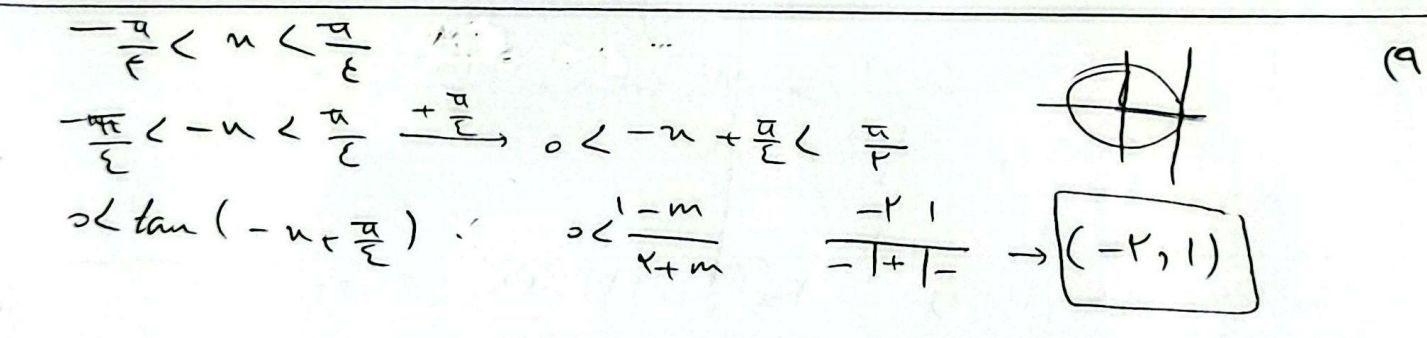 ۹)
-π/۴ < x < π/۴
-π/۴ < -x < π/۴ +π/۴ → ۰ < -x + π/۴ < π/۲
۰ < tan (-x + π/۴) ۰ < ۱-m/۲+m -۲ ۱ -|+|- → (-۲, ۱)